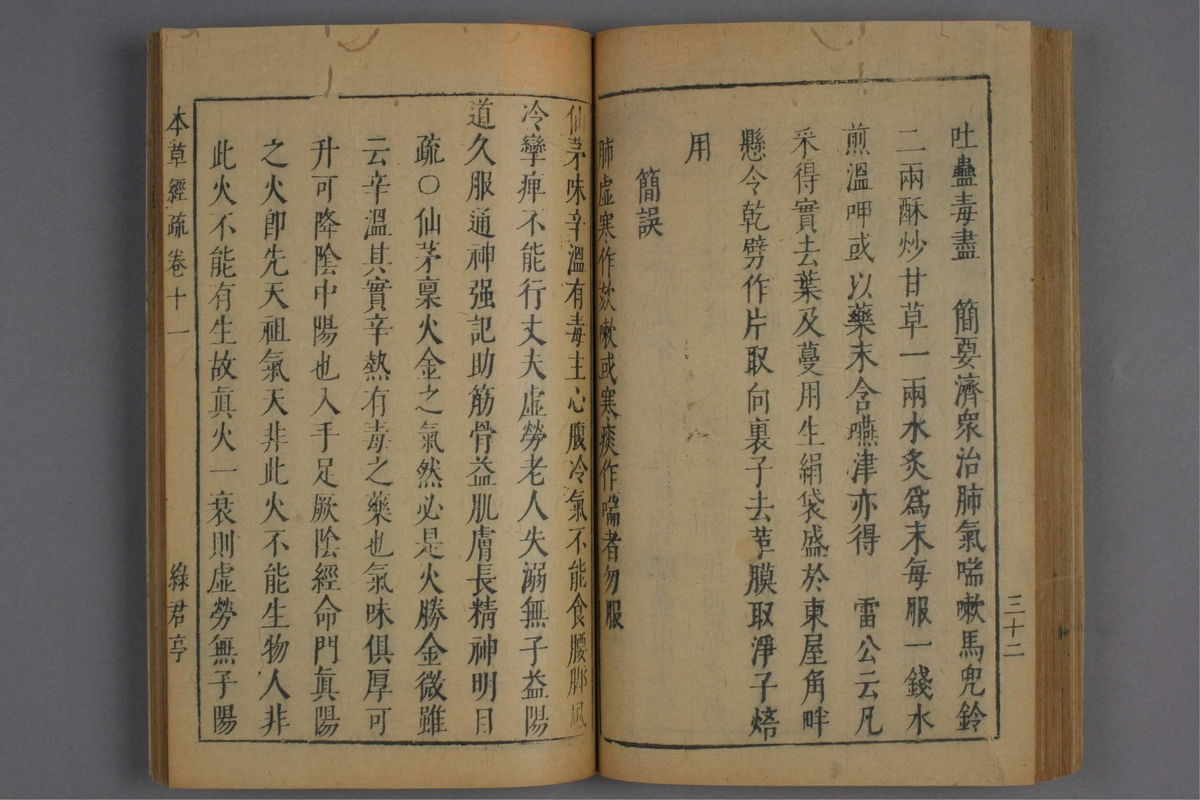 吐蠱毒盡　簡要濟衆治肺氣喘嗽馬兜鈴
二兩酥炒甘草一兩水炙爲末每服一錢水
煎溫呷或以藥末含嚥津亦得　雷公云凡
采得實去葉及蔓用生絹袋盛於東屋角畔
懸令乾劈作片取向裏子去革膜取淨子焙
用
簡誤
肺虛寒作欬嗽或寒痰作喘者勿服
三十二
仙茅味辛溫有毒主心腹冷氣不能食腰腳風
冷攣痺不能行丈夫虛勞老人失溺無子益陽
道久服通神强記助筋骨益肌膚長精神明目
疏○仙茅稟火金之氣然必是火勝金微雖
云辛溫其實辛熱有毒之藥也氣味俱厚可
升可降陰中陽也入手足厥陰經命門眞陽
之火卽先天祖氣天非此火不能生物人非
此火不能有生故眞火一衰則虛勞無子陽
本草經疏　卷十一　綠君亭